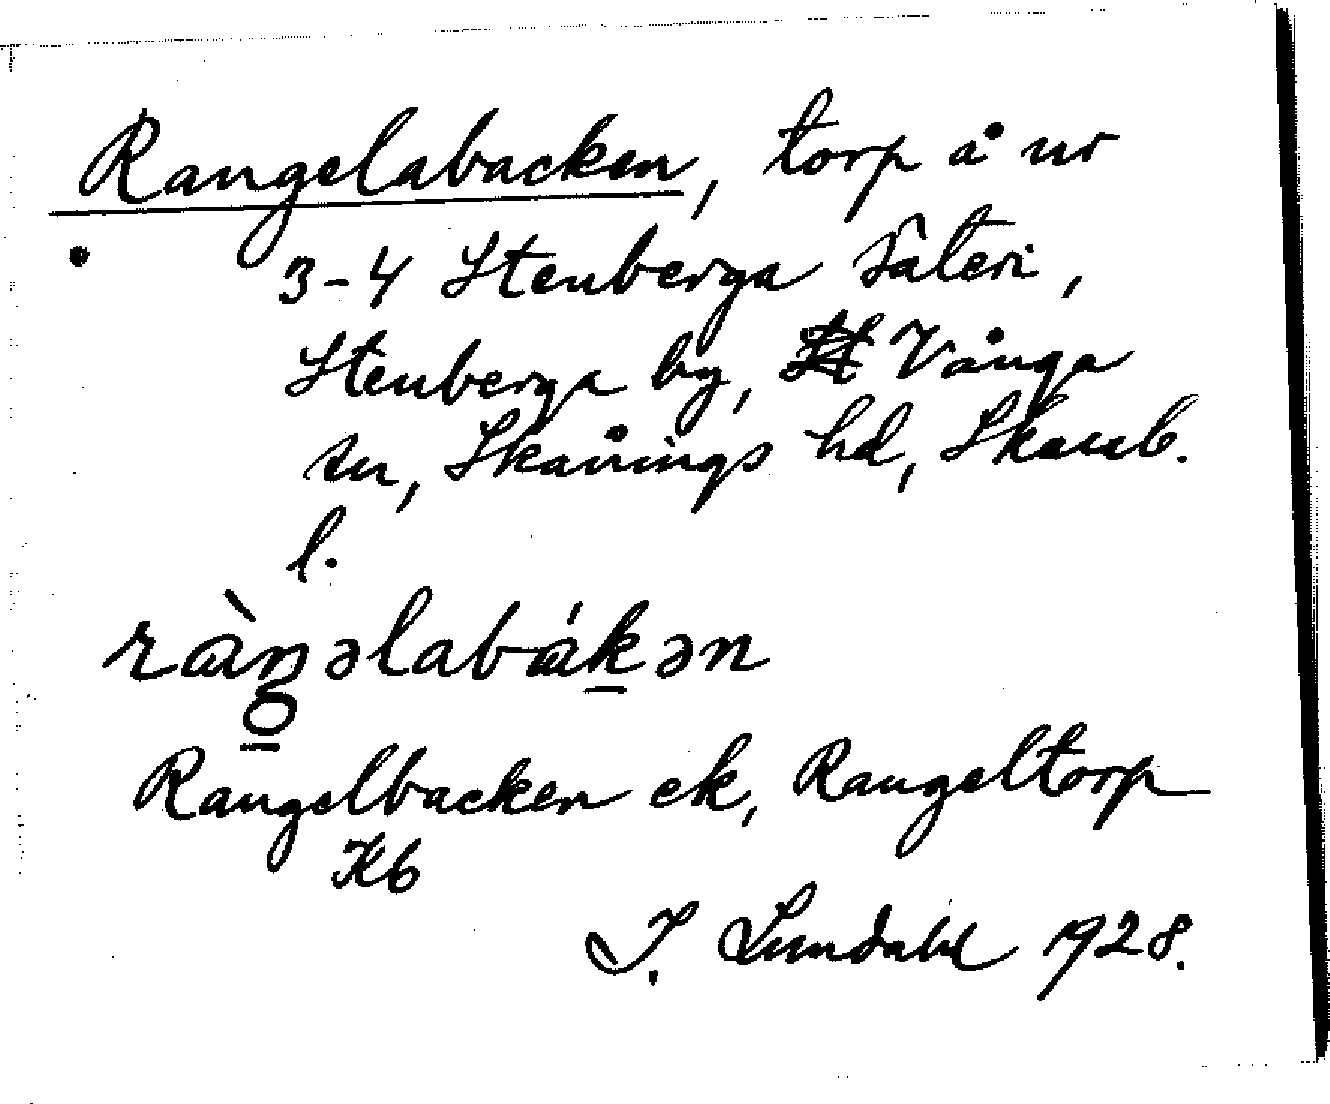 Rangelabacken, torp å nr
3-4 Stenberga Säteri,
Stenberga by, Vånga
sn, Skånings hd, Skarab.
l.
ràŋəlabákən
Rangelbacken ek, Rangeltorp
Kb
I. Lundahl 1928.